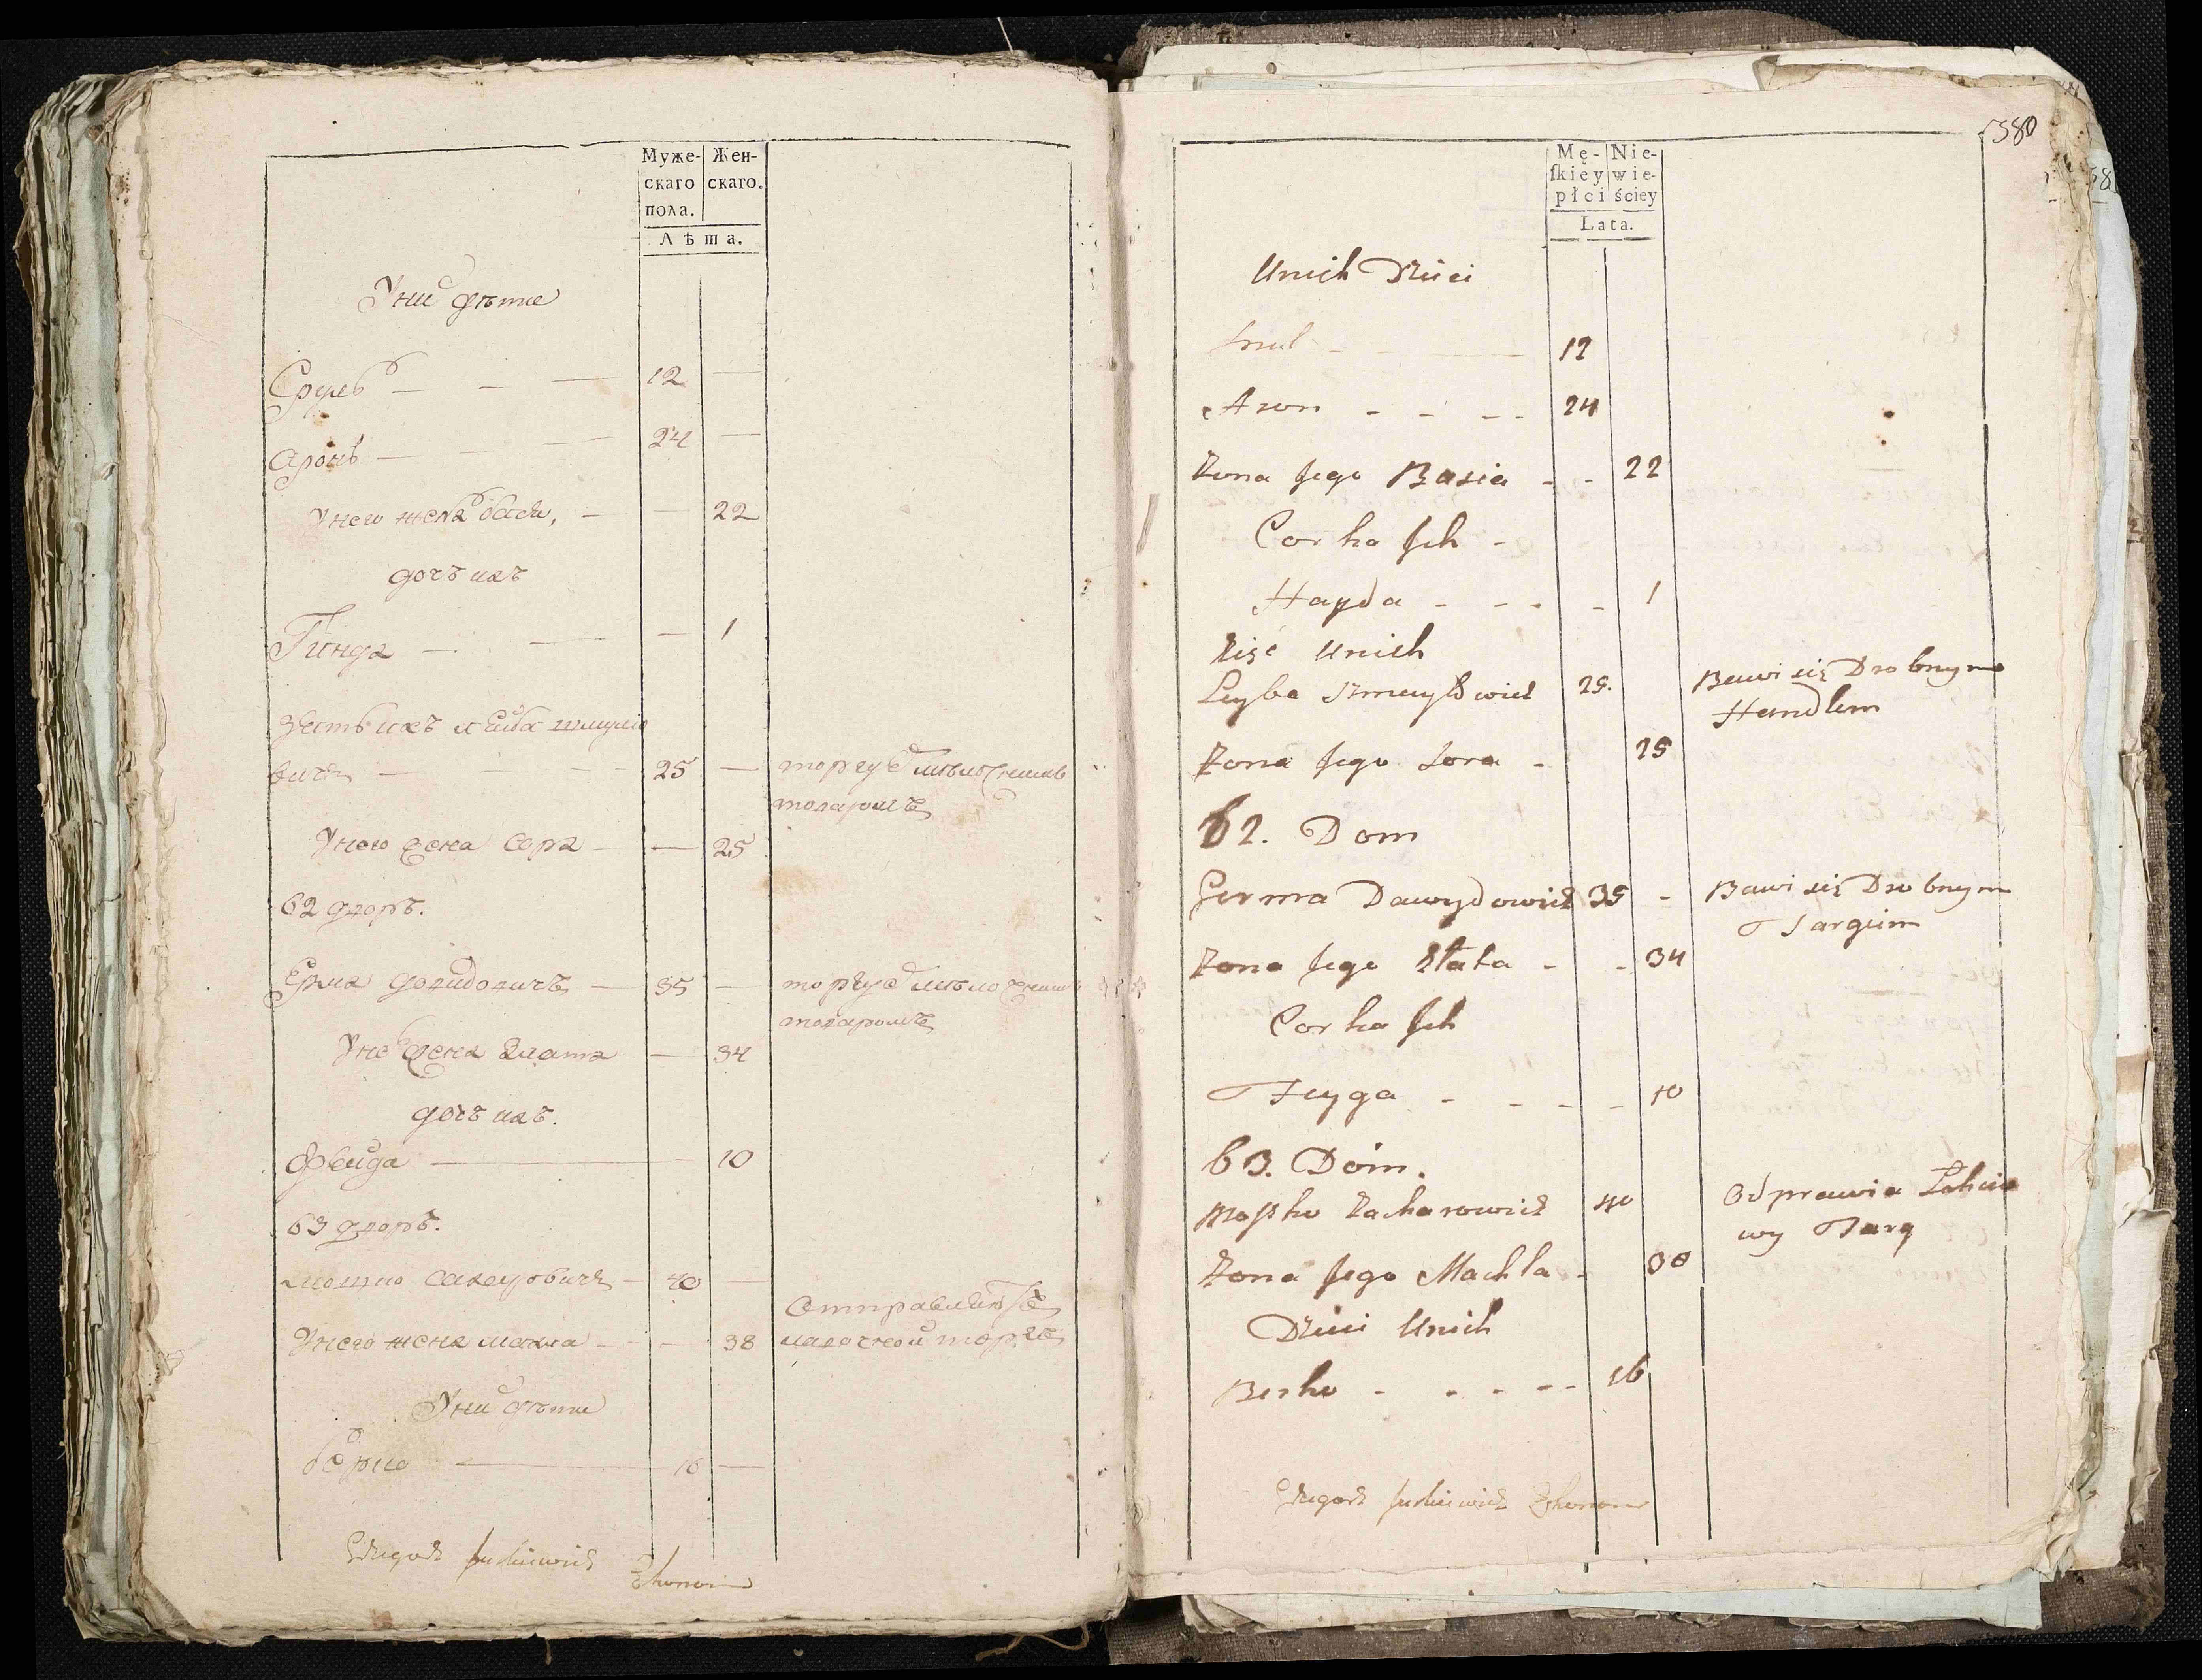 Муже-
скаго
пола.
Жен-
скаго.
Лѣта.
У них дѣти
Сруль — — — 12 —
Аронъ — — — 24 —
У него жена Бася, — — 22
дочь ихъ
Гинда — — — 1
Зять ихъ Лейба Шмуило
вичъ — — — 25 — торгуе мѣлочнымъ
товаромъ
У него жена Сора — — 25
62 дворъ.
Ерма Довидовичъ — 35 — торгуе мѣлочнымъ
товаромъ
У нево жена Злата — 34
дочь ихъ.
Фейга — — 10
63 дворъ.
Мошко Сахаровичъ — 40 —
Отправляютъ
У него жена Махла — — 38 лавочной торгъ
У них дѣти
Берко — 16 —
Grzegorz Juskiewicz Ekonom
580
Mę-
ſkiey
płci
Nie-
wie-
ściey
Lata.
Unich Dzieci
Srul - - — 12
Aron - - - - 24
Zona Jego Basia - - 22
Corka Ich -
Hayda - - - - 1
Zięć Unich
Leyba Szmuyłowicz 25. Bawi się Drobnym
Handlem
Zona Jego Sora - 25
62. Dom
Jerma Dawydowicz 35 - Bawi się Drobnym
Targiem
Zona Jego Złata - - 34
Corka Ich
Feyga - - - - 10
63. Dom.
Moszko Zacharowicz 40 Odprawia Łokcio
wy Targ
Zona Jego Machla - 38
Dzieci Unich
Berko - - - - - 16
Grzegorz Juskiewicz Ekonom